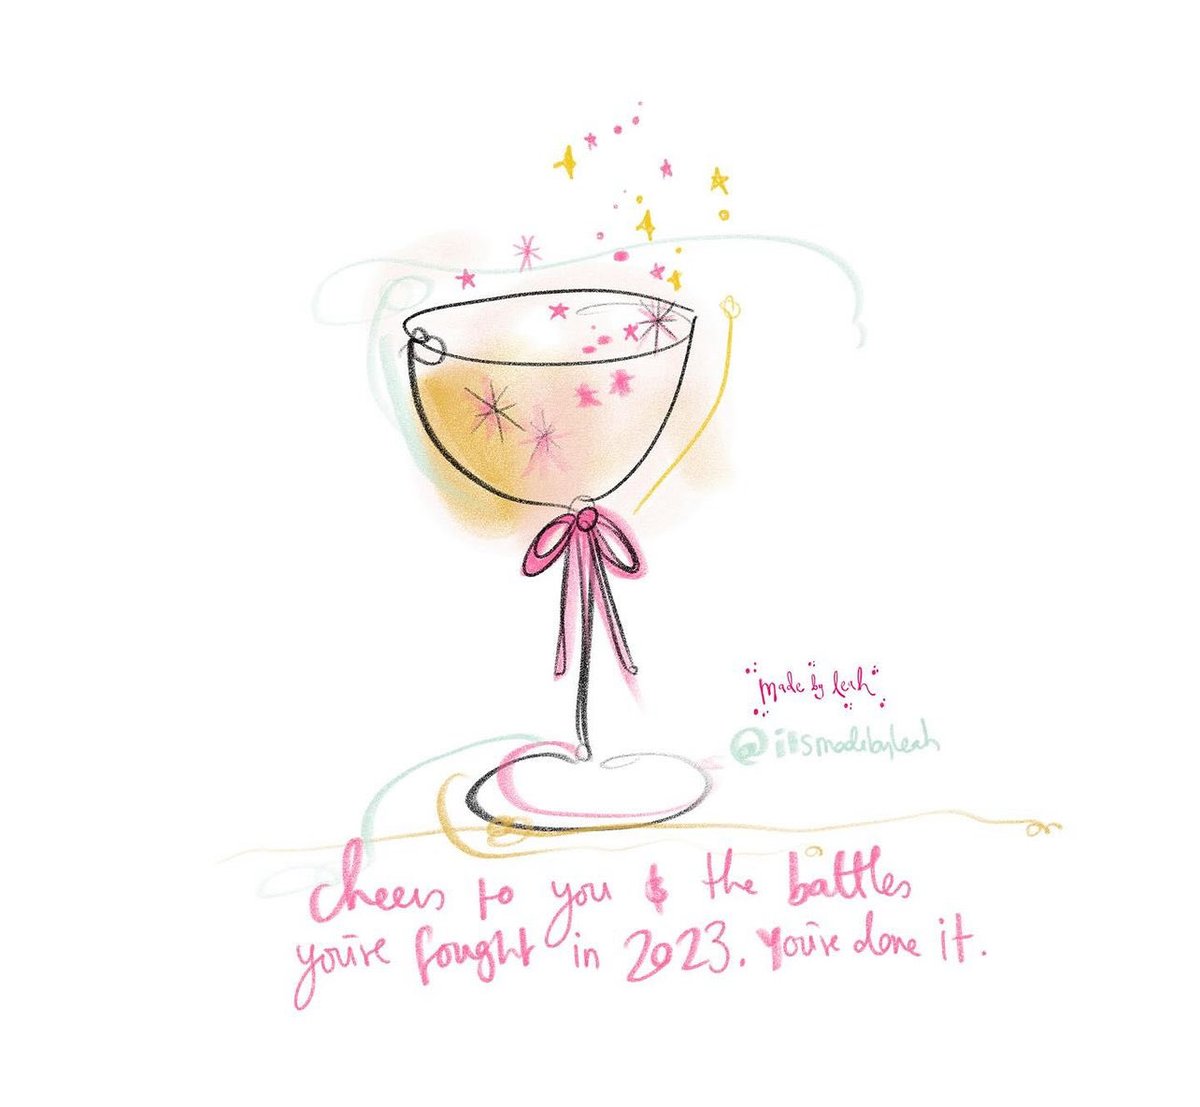 made by leah
@itsmadebyleah
cheers to you & the battles
you've fought in 2023. You've done it.